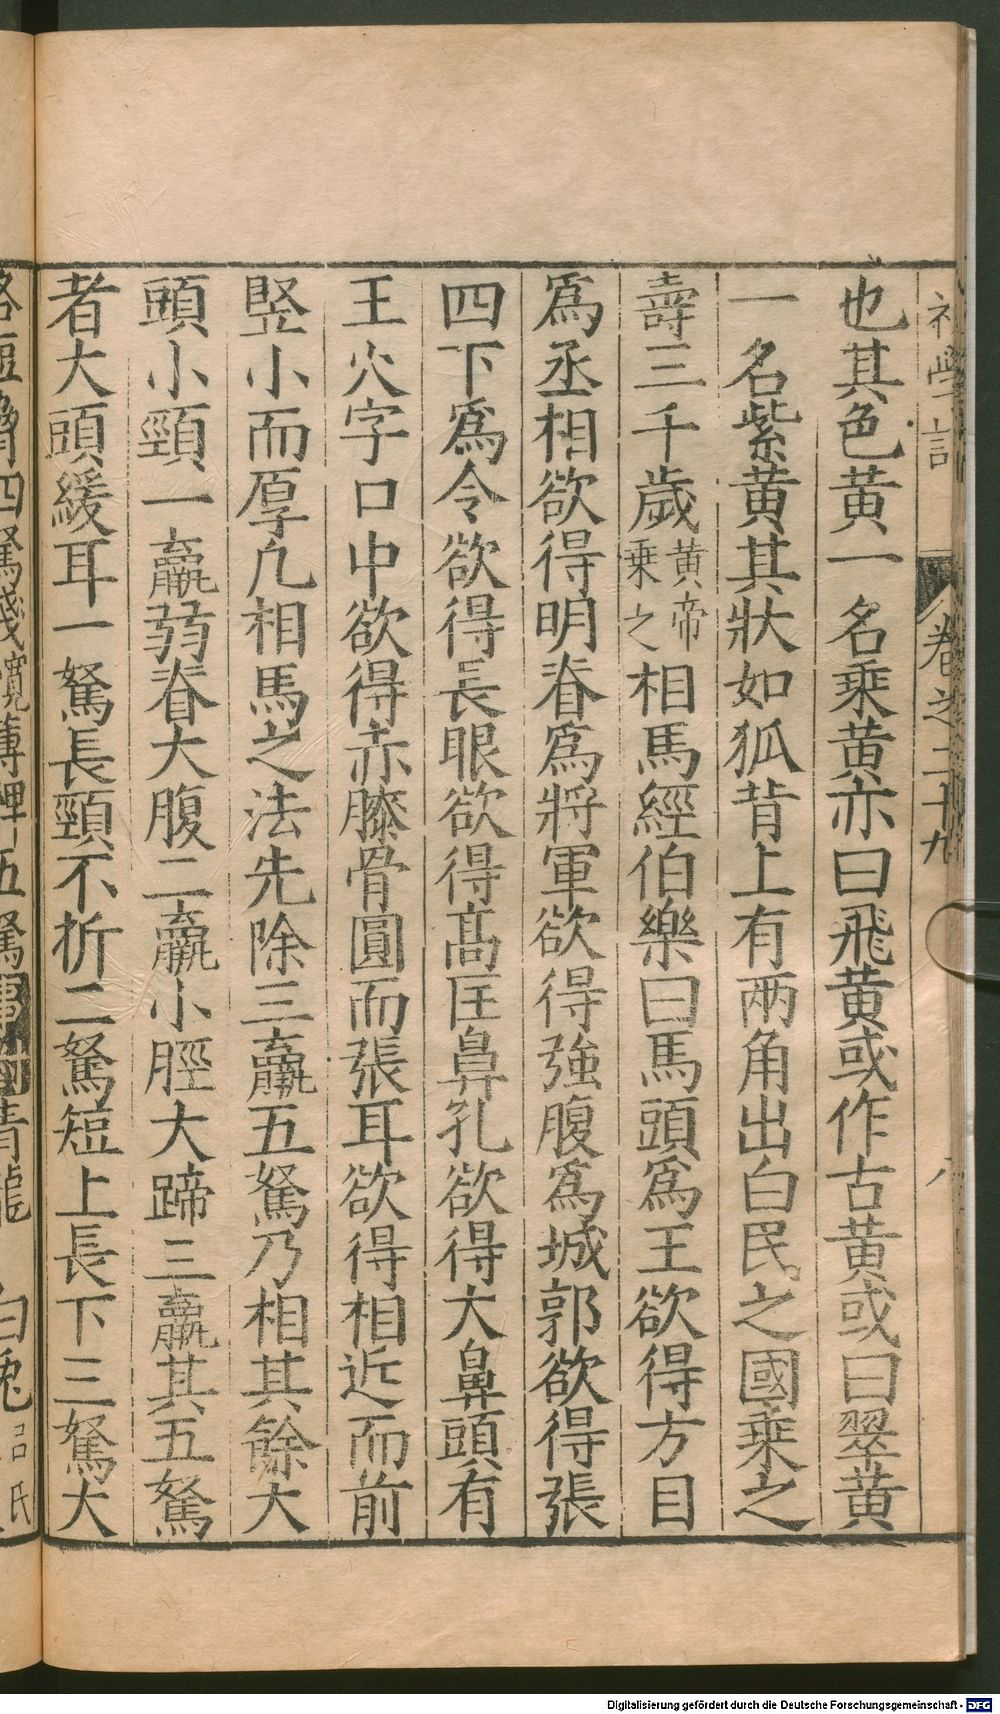 初學記 卷之二十九 八
也其色黄一名乗黄亦曰飛黄或作古黄或曰翠黄
一名紫黄其狀如狐背上有兩角出白民之國乗之
壽三千歳黄帝乗之相馬經伯樂曰馬頭爲王欲得方目
爲丞相欲得明脊爲將軍欲得強腹爲城郭欲得張
四下爲令欲得長眼欲得髙匡鼻孔欲得大鼻頭有
王火字口中欲得赤膝骨圓而張耳欲得相近而前
竪小而厚凢相馬之法先除三羸五駑乃相其餘大
頭小頸一羸弱脊大腹二羸小脛大蹄三羸其五駑
者大頭緩耳一駑長頸不折二駑短上長下三駑大
髂短脅四駑淺寛薄髀五駑事對青龍 白兎吕氏
Digitalisierung gefördert durch die Deutsche Forschungsgemeinschaft - DFG